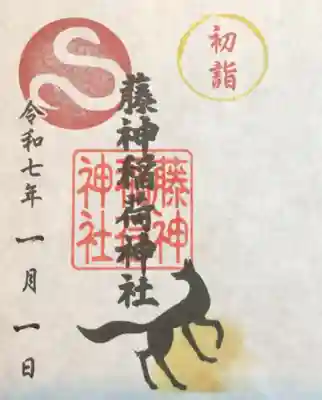 初詣
藤神稲荷神社
藤神
稲荷
神社
令和七年 一月 一日